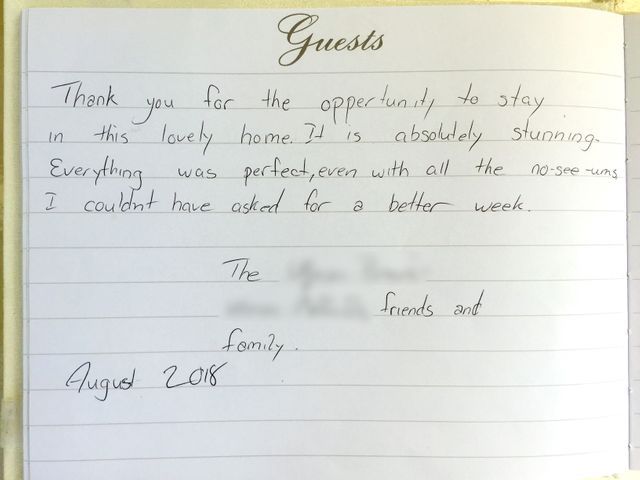 Guests
Thank you for the oppertunity to stay
in this lovely home. It is absolutely stunning.
Everything was perfect, even with all the no-see-ums
I couldnt have asked for a better week.
The
friends and
family.
August 2018